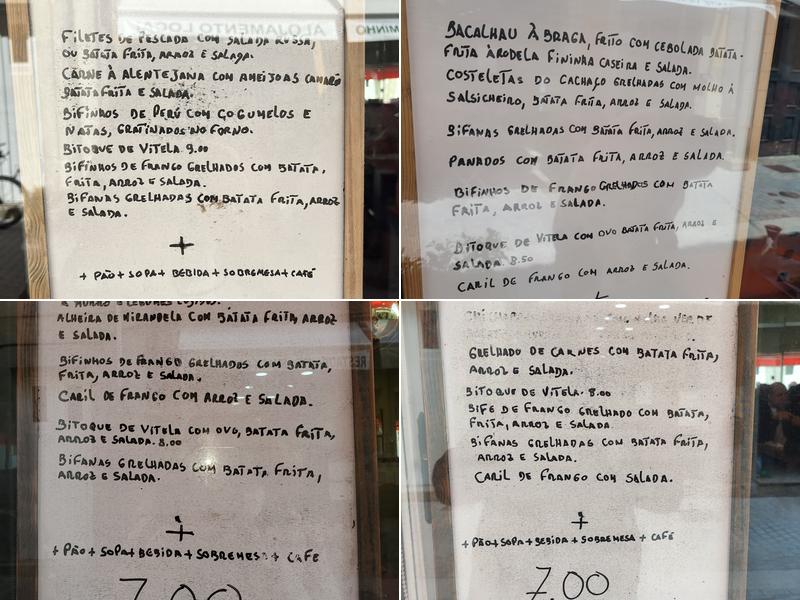 ALOJAMENTO LOC
MINHO
FILETES DE PESCADA COM SALADA RUSSA,
OU BATATA FRITA, ARROZ E SALADA.
CARNE À ALENTEJANA COM AMEIJOAS CAMARÃO
BATATA FRITA E SALADA.
BIFINHOS DE PERÚ COM COGUMELOS E
NATAS, GRATINADOS NO FORNO.
BITOQUE DE VITELA 9.00
BIFINHOS DE FRANGO GRELHADOS COM BATATA,
FRITA, ARROZ E SALADA.
BIFANAS GRELHADAS COM BATATA FRITA, ARROZ
E SALADA.
+
+ PÃO + SOPA + BEBIDA + SOBREMESA + CAFÉ
BACALHAU À BRAGA, FRITO COM CEBOLADA BATATA
FRITA ÀRODELA FININHA CASEIRA E SALADA.
COSTELETAS DO CACHAÇO GRELHADAS COM MOLHO À
SALSICHEIRO, BATATA FRITA, ARROZ E SALADA.
BIFANAS GRELHADAS COM BATATA FRITA, ARROZ E SALADA.
PANADOS COM BATATA FRITA, ARROZ E SALADA.
BIFINHOS DE FRANGO GRELHADOS COM BATATA
FRITA, ARROZ E SALADA.
BITOQUE DE VITELA COM OVO BATATA FRITA, ARROZ E
SALADA. 8.50
CARIL DE FRANGO COM ARROZ E SALADA.
À MURRO E LEGUMES COZIDOS.
ALHEIRA DE MIRANDELA COM BATATA FRITA, ARROZ
E SALADA.
BIFINHOS DE FRANGO GRELHADOS COM BATATA,
FRITA, ARROZ E SALADA.
CARIL DE FRANGO COM ARROZ E SALADA.
BITOQUE DE VITELA COM OVO, BATATA FRITA,
ARROZ E SALADA. 8,00
BIFANAS GRELHADAS COM BATATA FRITA,
ARROZ E SALADA.
+
+ PÃO + SOPA + BEBIDA + SOBREMESA + CAFÉ
7,00
REST
GRELHADO DE CARNES COM BATATA FRITA,
ARROZ E SALADA.
BITOQUE DE VITELA. 8.00
BIFE DE FRANGO GRELHADO COM BATATA,
FRITA, ARROZ E SALADA.
BIFANAS GRELHADAS COM BATATA FRITA,
ARROZ E SALADA.
CARIL DE FRANGO COM SALADA.
+
+ PÃO + SOPA + BEBIDA + SOBREMESA + CAFÉ
7.00